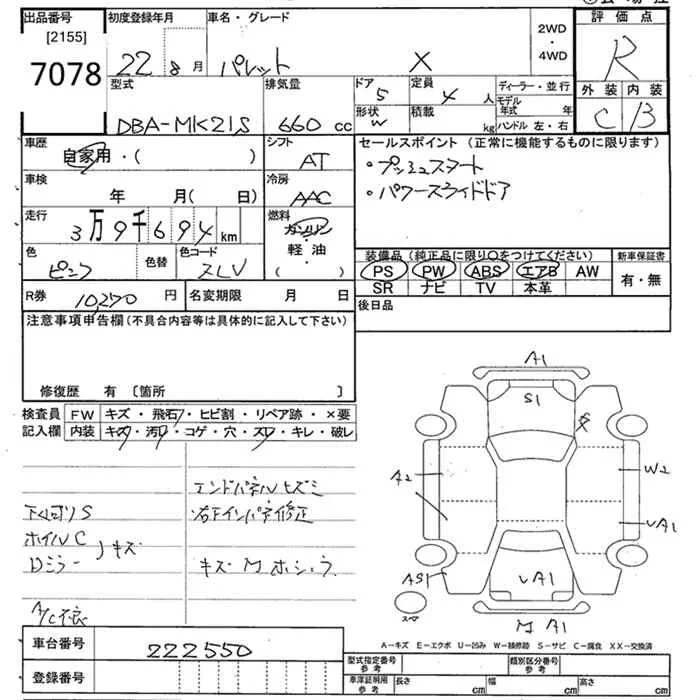 出品番号 初度登録年月 車名・グレード 2WD・4WD 評価点
[2155]
7078
22 8月 パレット X R
型式 排気量 ドア 5 定員 4人 ディーラー・並行 外装 内装
DBA-MK21S 660cc 形状 W 積載 kg モデル年式 年 ハンドル 左・右 C B
車歴 自家用・( ) シフト AT セールスポイント (正常に機能するものに限ります)
・プッシュスタート
・パワースライドドア
車検 年 月( 日) 冷房 AAC
走行 3万9千694km 燃料 ガソリン・軽油 ( )
色 ピンク 色替 色コード ZLV
装備品 (純正品に限り○をつけてください) 新車保証書
PS PW ABS エアB AW 有・無
SR ナビ TV 本革
R券 10,270円 名変期限 月 日 後日品
注意事項申告欄(不具合内容等は具体的に記入して下さい)
修復歴 有 〔箇所 〕
検査員 FW キズ・飛石・ヒビ割・リペア跡・×要
記入欄 内装 キズ・汚レ・コゲ・穴・スレ・キレ・破レ
エンドパネルヒズミ
下回りS
ホイルC
Dミラー キズ
キズ M ホシュウ
A/C不良
A1
S1
A2
W2
UA1
AS1
UA1
スペア
M A1
A-キズ E-エクボ U-凹み W-補修跡 S-サビ C-腐食 XX-交換済
車台番号 222550
登録番号
型式指定番号 参考 類別区分番号 参考
車庫証明用 参考 長さ cm 幅 cm 高さ cm